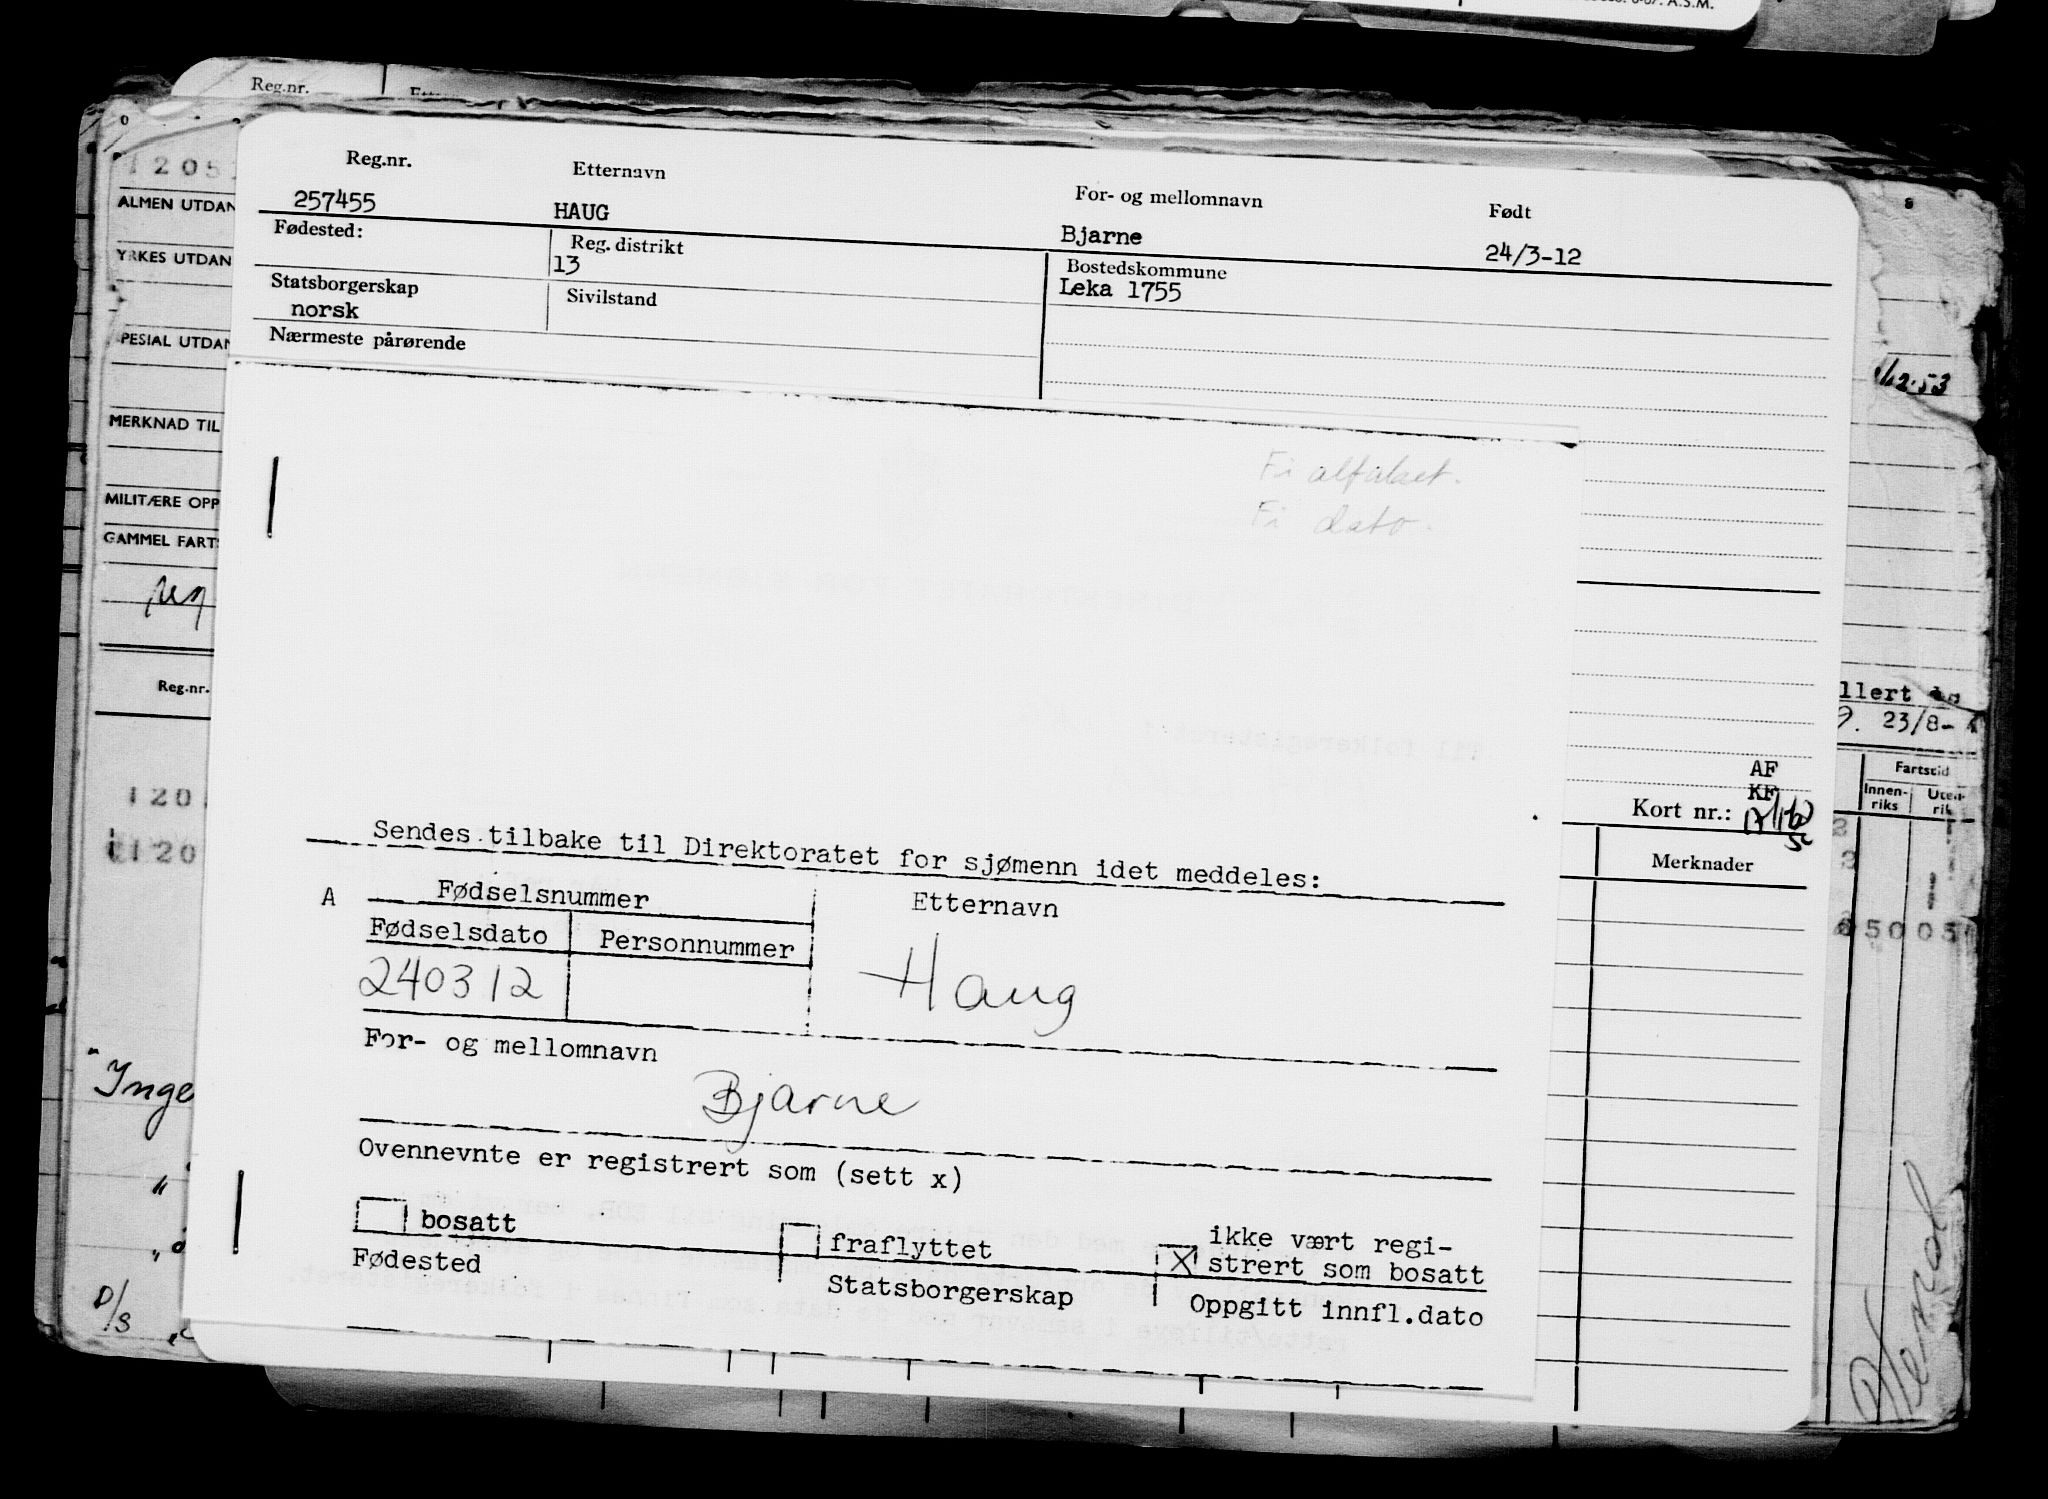 A.S.M.
Reg.nr.
1205
ALMEN UTDAN
YRKES UTDAN
PESIAL UTDAN
MERKNAD TIL
MILITÆRE OPP
GAMMEL FARTS
Reg.nr.
120
1120
"Inge
D/S
Reg.nr. Etternavn For- og mellomnavn Født
257455 HAUG Bjarne 24/3-12
Fødested: Reg. distrikt Bostedskommune
13 Leka 1755
Statsborgerskap Sivilstand
norsk
Nærmeste pårørende
Fi alfabet.
Fi dato.
AF
KF
Kort nr.:
Merknader
Sendes tilbake til Direktoratet for sjømenn idet meddeles:
A Fødselsnummer Etternavn
Fødselsdato Personnummer
240312 Haug
For- og mellomnavn
Bjarne
Ovennevnte er registrert som (sett x)
bosatt fraflyttet ikke vært regi-
X strert som bosatt
Fødested Statsborgerskap Oppgitt innfl.dato
llert
23/8-
Fartstid
Innen-
riks
Uten-
rik